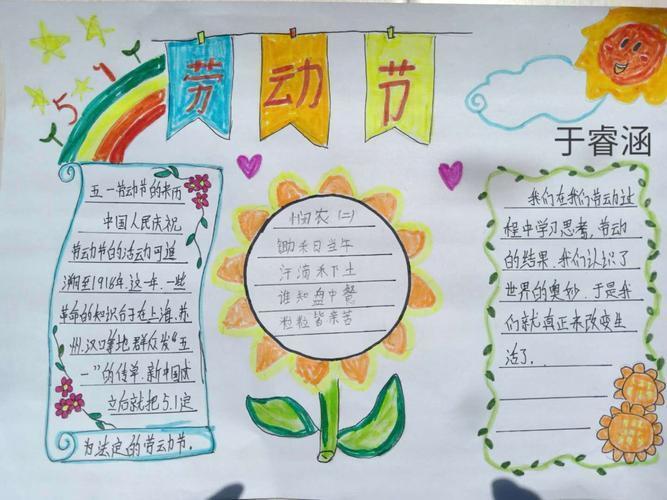 劳动节
51
于睿涵
五一劳动节的来历
中国人民庆祝
劳动节的活动可追
溯至1918年.这一年.一些
革命的知识分子在上海.苏
州.汉口等地群众发"五
一"的传单.新中国成
立后就把5.1定
为法定的劳动节.
悯农(二)
锄禾日当午
汗滴禾下土
谁知盘中餐
粒粒皆辛苦
我们在我们劳动过
程中学习思考.劳动
的结果.我们认识了
世界的奥妙.于是我
们就真正来改变生
活了.